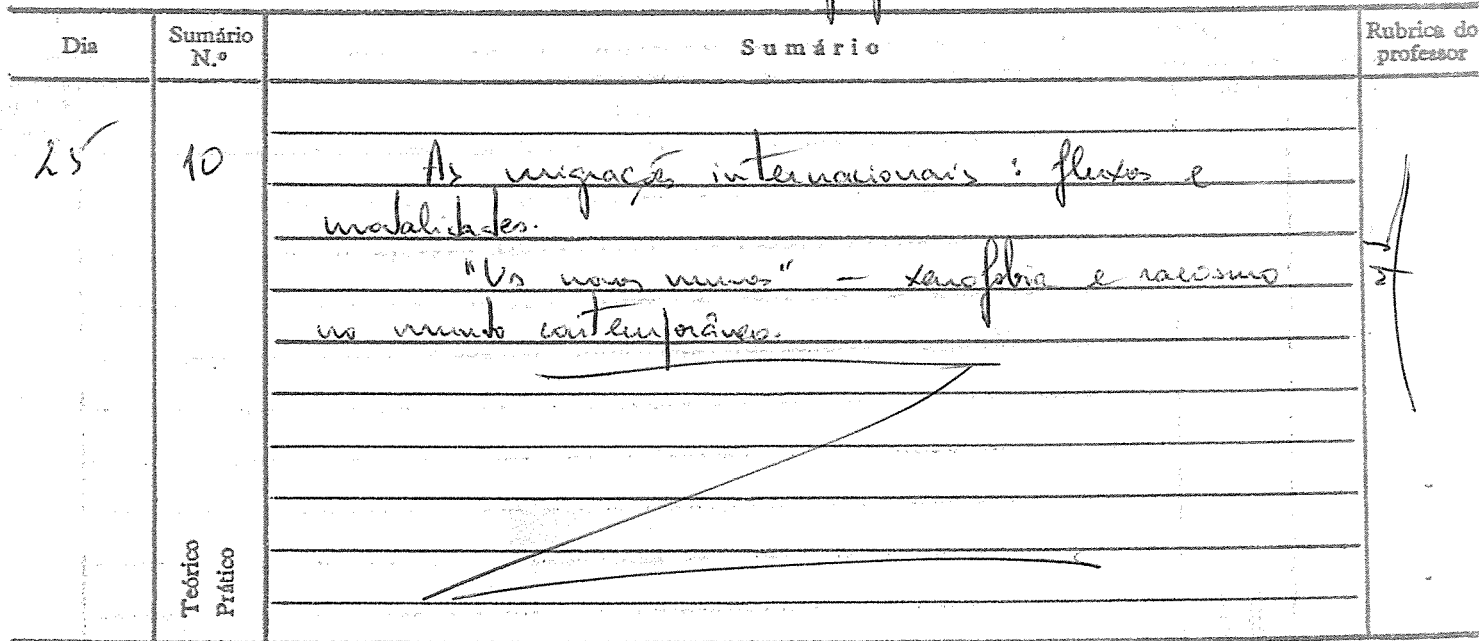 Dia
Sumário
N.º
Sumário
Rubrica do
professor
25
10
As migrações internacionais : fluxos e
modalidades.
"Os novos muros" - xenofobia e racismo
no mundo contemporâneo.
Teórico
Prático